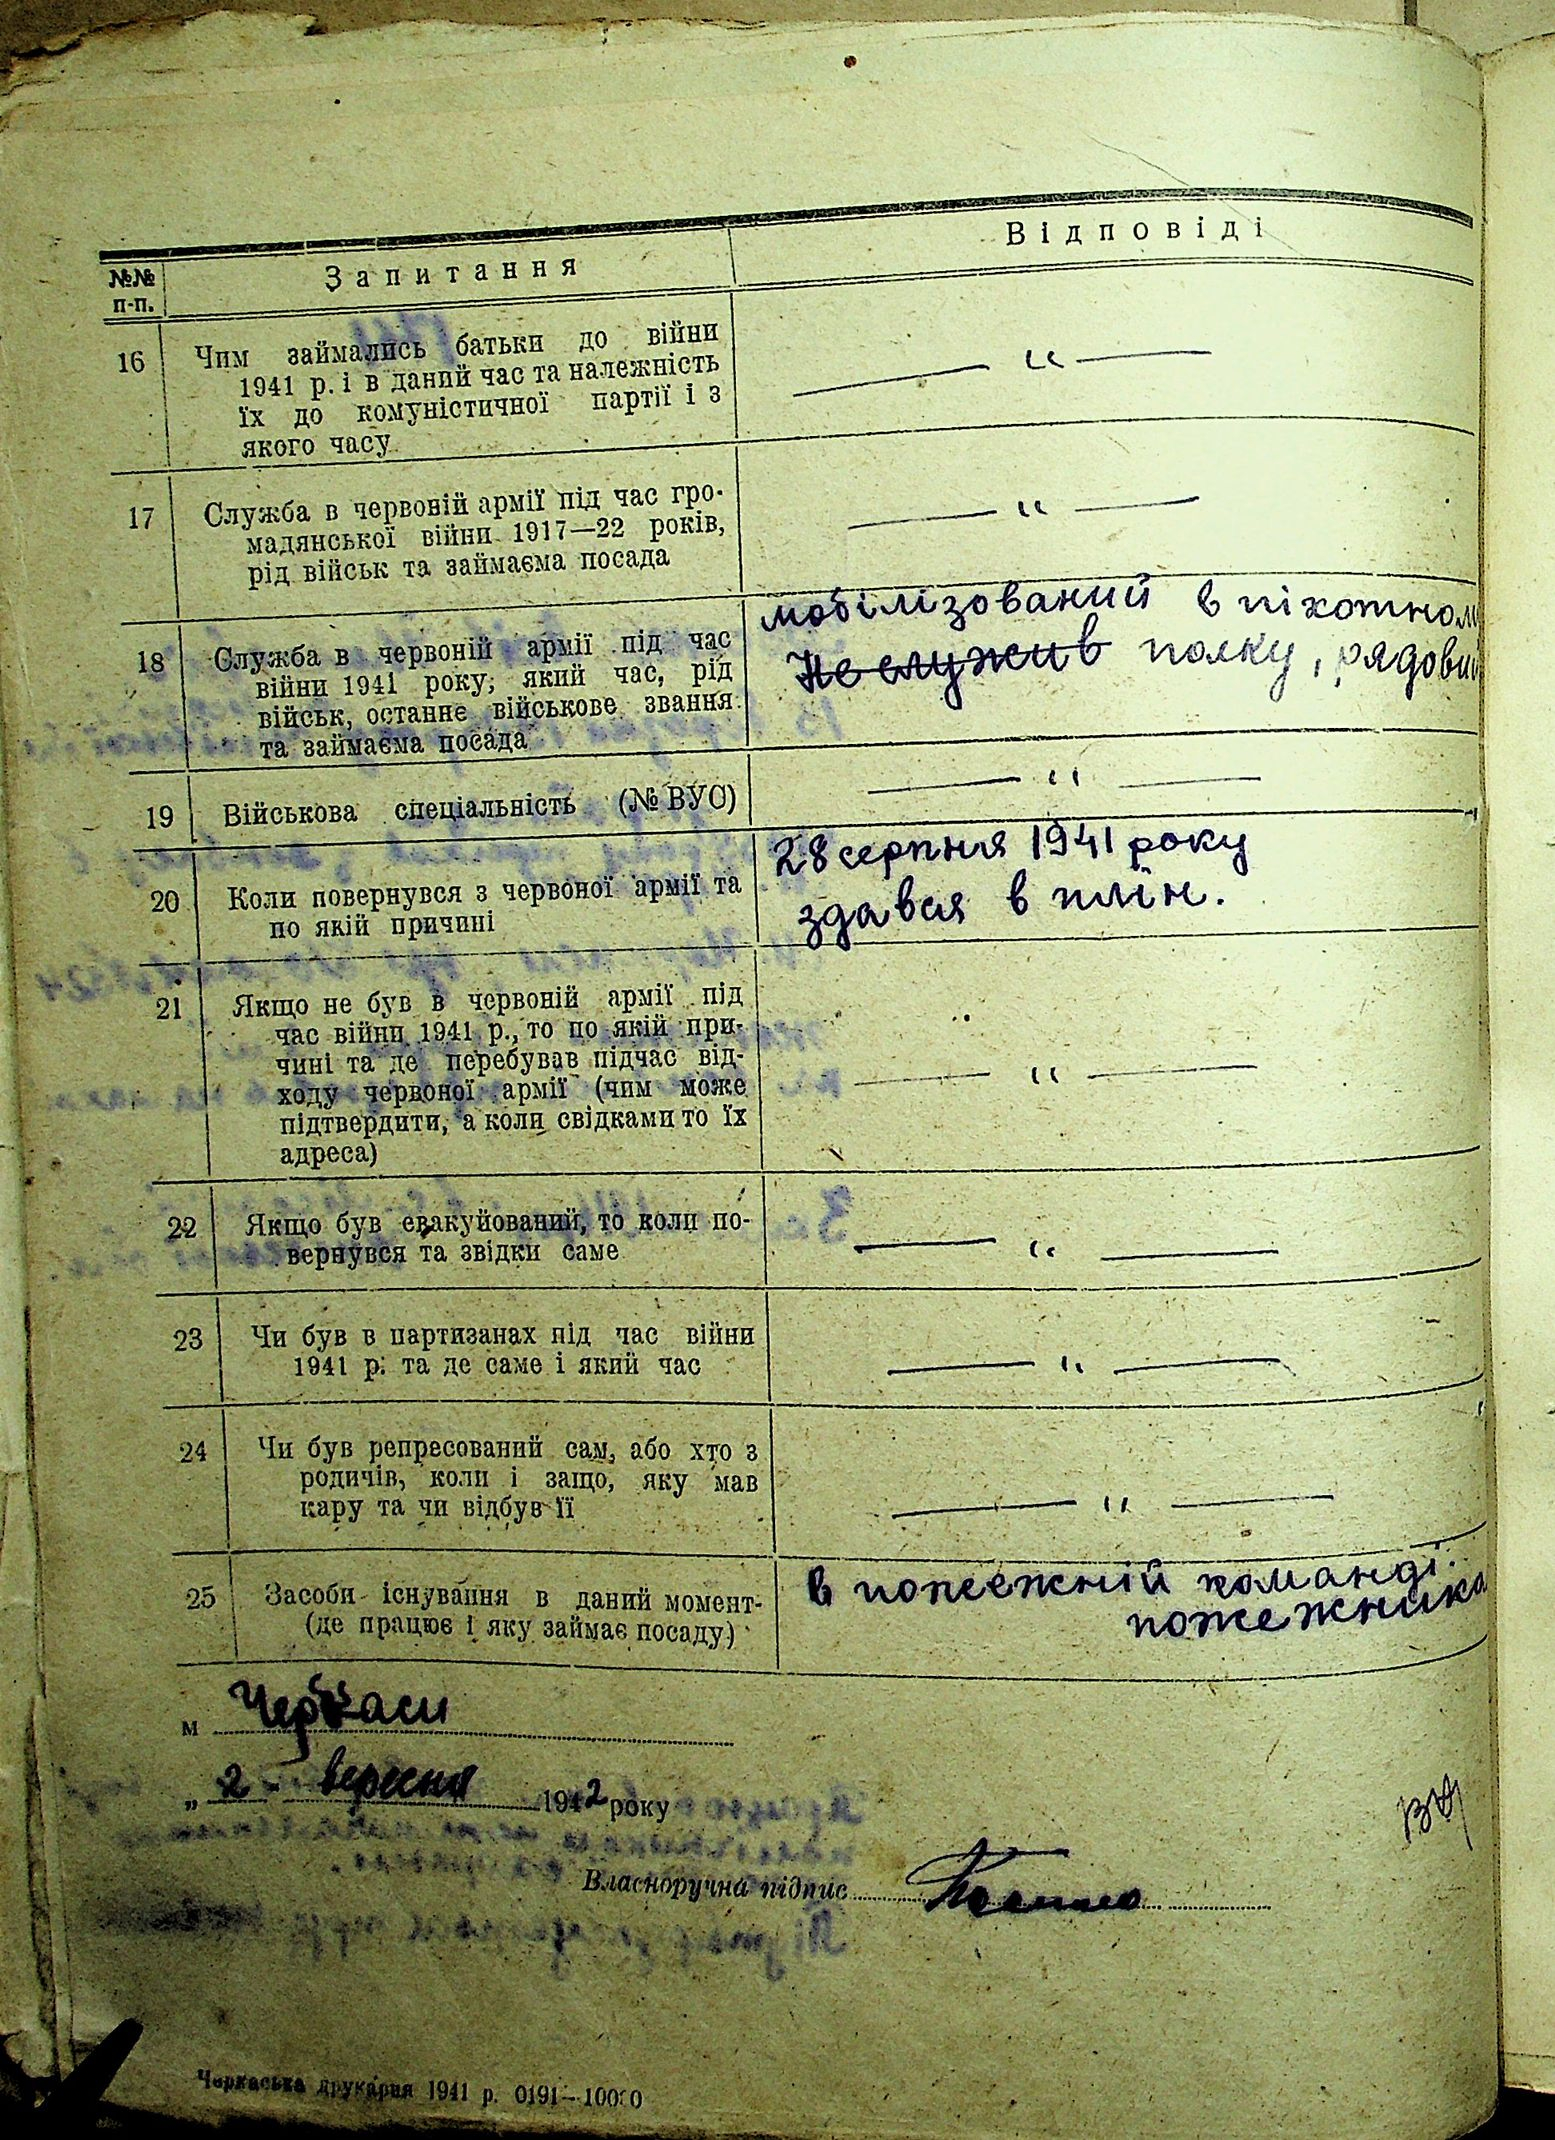 №№ п-п.
Запитання
Відповіді
16
Чим займались батьки до війни
1941 р. і в даний час та належність
їх до комуністичної партії і з
якого часу
— " —
17
Служба в червоній армії під час гро-
мадянської війни 1917—22 років,
рід військ та займаєма посада
— " —
18
Служба в червоній армії під час
війни 1941 року, який час, рід
військ, останнє військове звання
та займаєма посада
мобілізований в піхотном
Не служив полку, рядовий
19
Військова спеціальність (№ ВУС)
— " —
20
Коли повернувся з червоної армії та
по якій причині
28 серпня 1941 року
здався в плін.
21
Якщо не був в червоній армії під
час війни 1941 р., то по якій при-
чині та де перебував підчас від-
ходу червоної армії (чим може
підтвердити, а коли свідками то їх
адреса)
— " —
22
Якщо був евакуйований, то коли по-
вернувся та звідки саме
— " —
23
Чи був в партизанах під час війни
1941 р. та де саме і який час
— " —
24
Чи був репресований сам, або хто з
родичів, коли і защо, яку мав
кару та чи відбув її
— " —
25
Засоби існування в даний момент-
(де працює і яку займає посаду)
в пожежній команді.
пожежника
м Черкаси
„ 2 " вересня 1942 року
Власноручна підпис
Черкаська друкарня 1941 р. 0191—10000